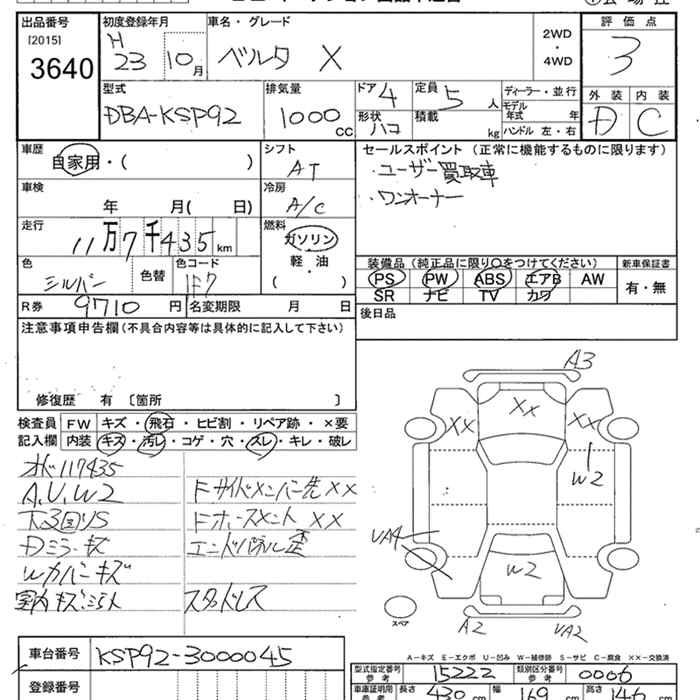 出品番号 初度登録年月 車名・グレード 2WD・4WD 評価点
[2015] H 23 10月 ベルタ X 3
3640
型式 排気量 ドア 4 定員 5人 ディーラー・並行 外装 内装
DBA-KSP92 1000cc 形状 ハコ 積載 kg モデル年式 年 D C
ハンドル 左・右
車歴 シフト セールスポイント(正常に機能するものに限ります)
自家用・( ) AT ・ユーザー買取車
車検 冷房 ・ワンオーナー
年 月( 日) A/C
走行 燃料
11万7千435km ガソリン
軽・油
( )
色 色替 色コード 装備品(純正品に限り○をつけてください) 新車保証書
シルバー 1F7 PS PW ABS エアB AW 有・無
SR ナビ TV カワ
R券 9710円 名変期限 月 日 後日品
注意事項申告欄(不具合内容等は具体的に記入して下さい)
修復歴 有 〔箇所 〕
検査員 FW キズ・飛石・ヒビ割・リペア跡・×要
記入欄 内装 キズ・汚レ・コゲ・穴・スレ・キレ・破レ
A3
XX XX XX
W2
UA4
W2
A2 UA2
スペア
117435
A,U,W2 Fサイドメンバー先XX
下3回りS Fホースメント XX
Dミラーキズ エンドパネル歪
Wカバーキズ
スタッドレス
A-キズ E-エクボ U-凹み W-補修跡 S-サビ C-腐食 XX-交換済
車台番号 KSP92-3000045
登録番号
型式指定番号 参考 15222 類別区分番号 参考 0006
車庫証明用 参考 長さ 430cm 幅 169cm 高さ 146cm